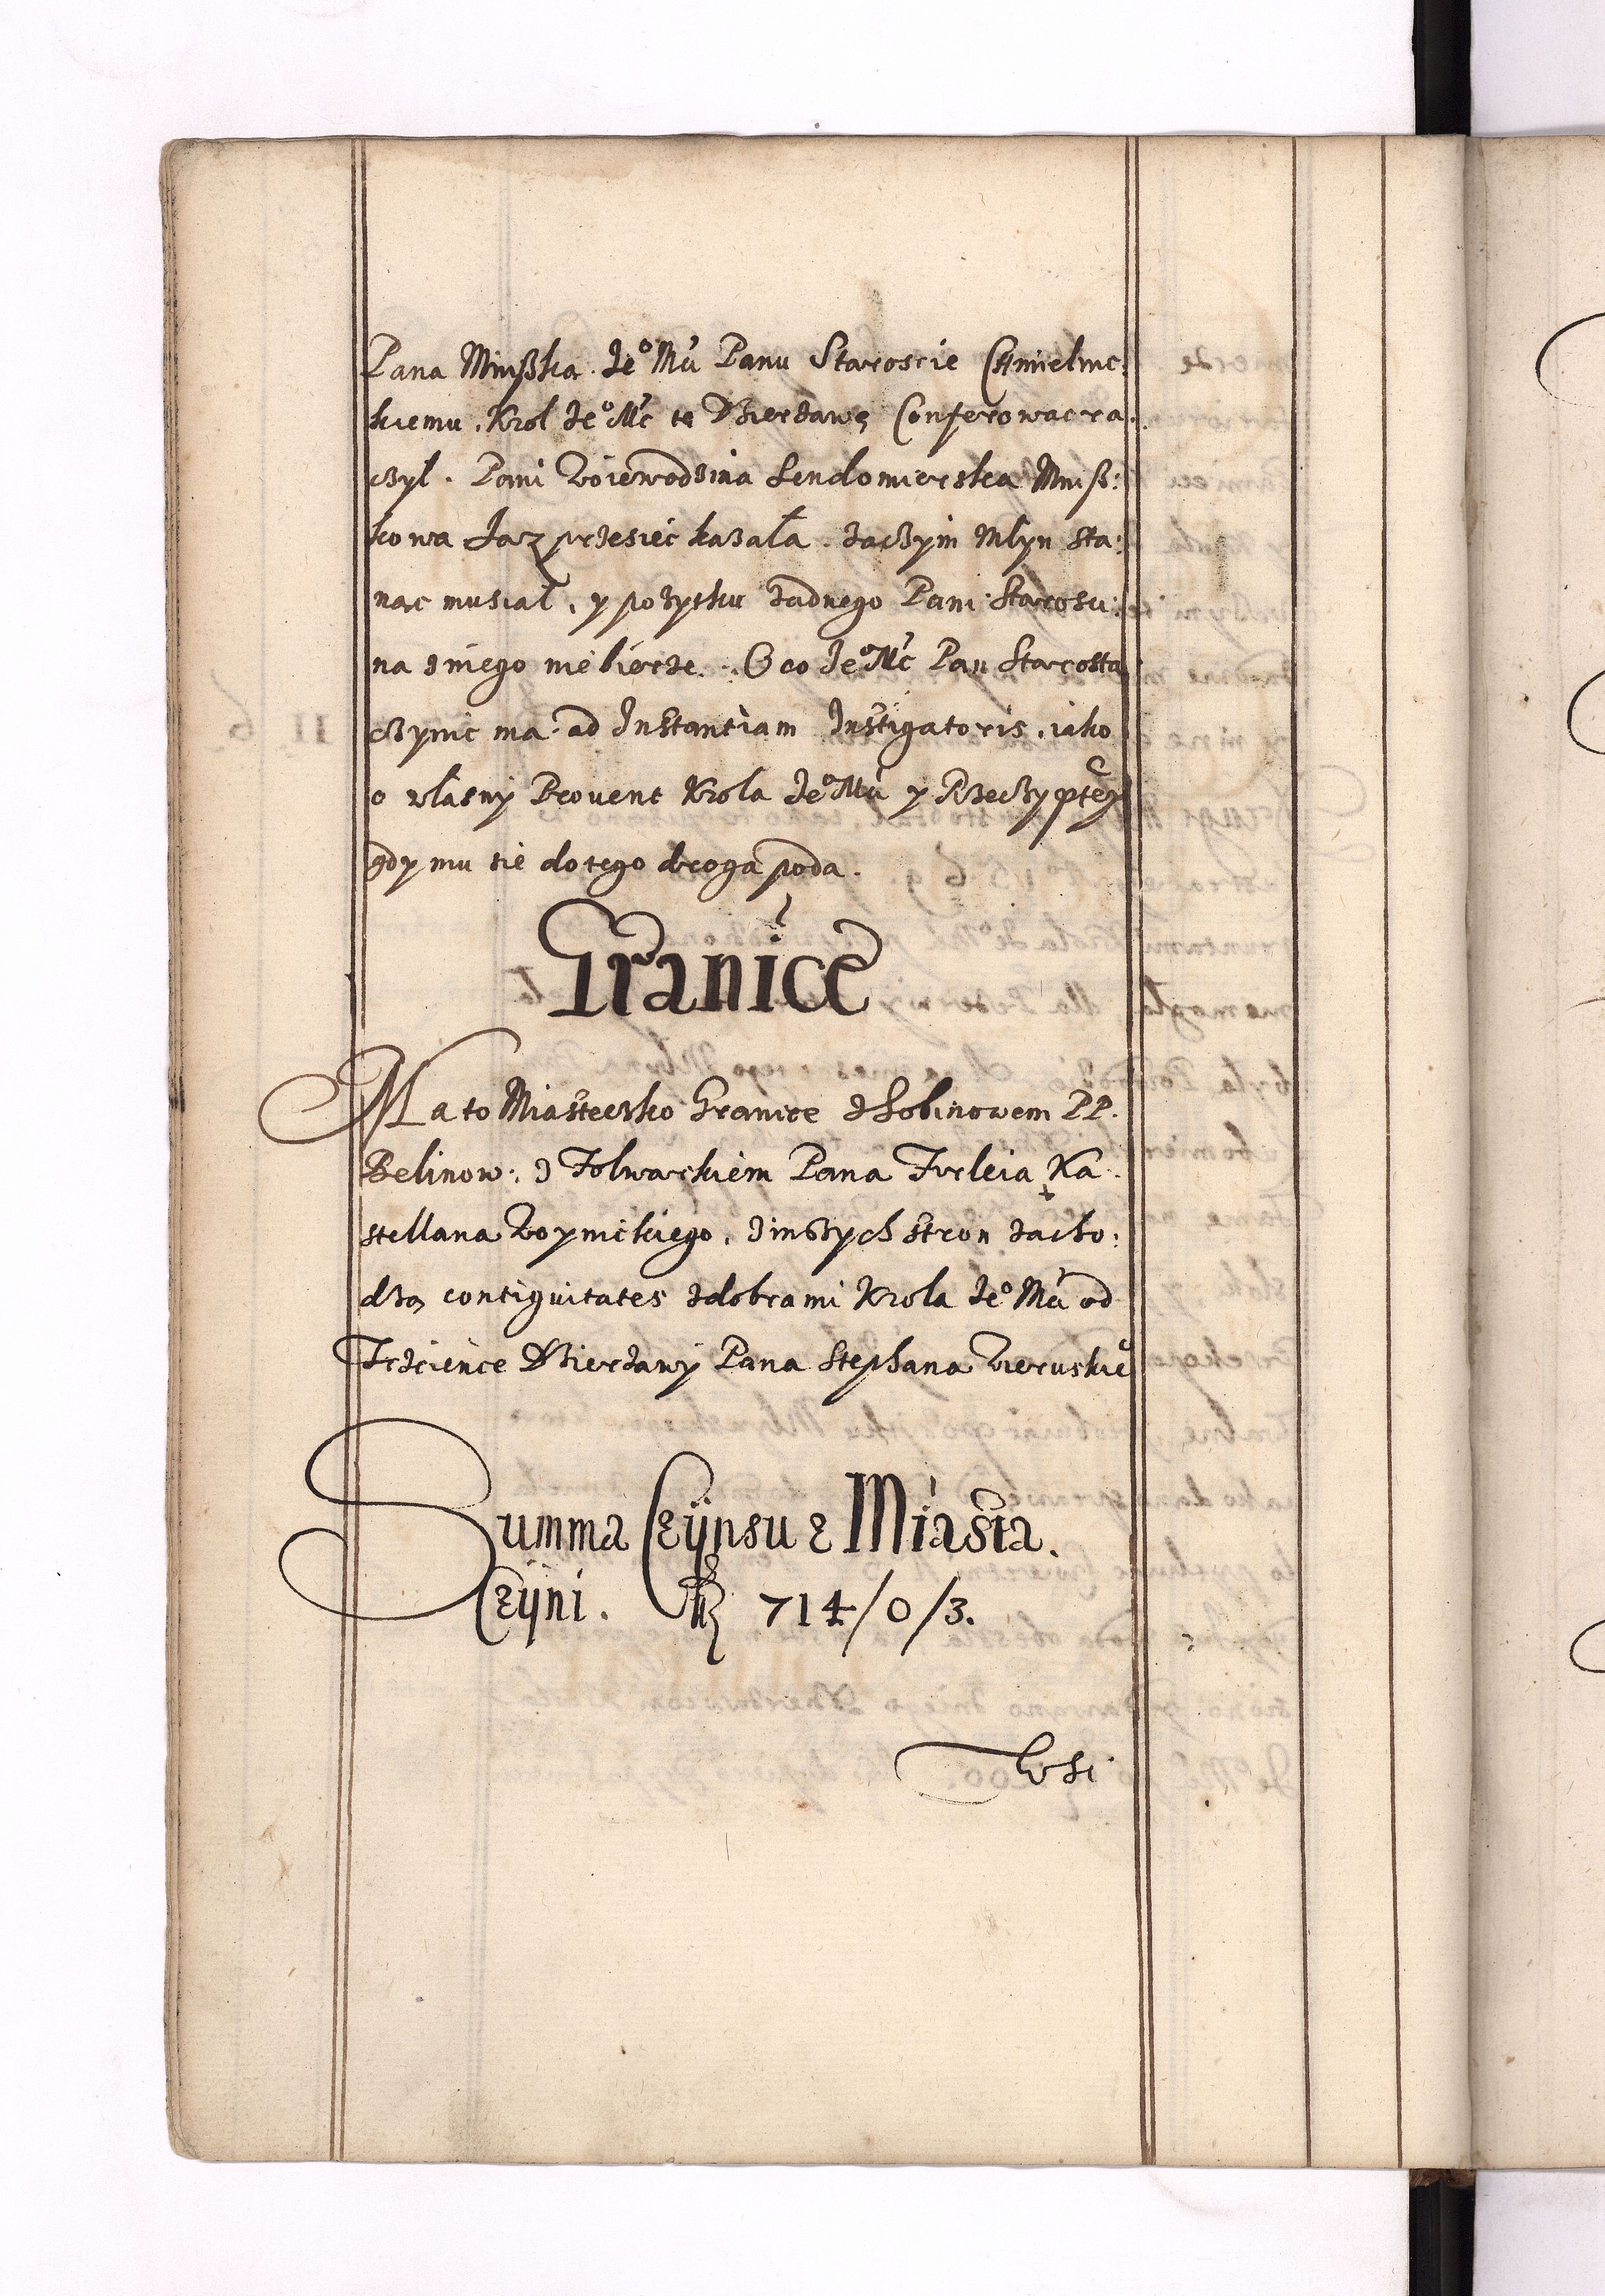 Pana Mnißka Je° Mći Panu Staroscie Chmielnic:
kiemu, Krol Je° Mć tę Dzierżawę Conferowac ra
czył. Pani Woiewodzina Sendomierska Mniß:
kowa Jaz przesiec kazała. zaczym Młyn sta:
nac musiał, y pozytku zadnego Pani Starosci:
na z niego nie bierze. O co Je° Mć Pan Starosta
czynic ma ad Instantiam Instigatoris, iako
o własny Provent Krola Je° Mći y Rzeczyptey
gdy mu sie do tego droga poda.
Granice
Ma to Miasteczko Granice z Sobinowem PP.
Belinow: z Folwarkiem Pana Firleia Ka
stellana Woynickiego, z inszych stron zacho:
dzą contiguitates z dobrami Krola Je° Mći od
Trzcience Dzierzawy Pana Stephana Wieruskie
Summa Czÿnsu z Miasta.
Czÿni. 714/0/3.
Wsi